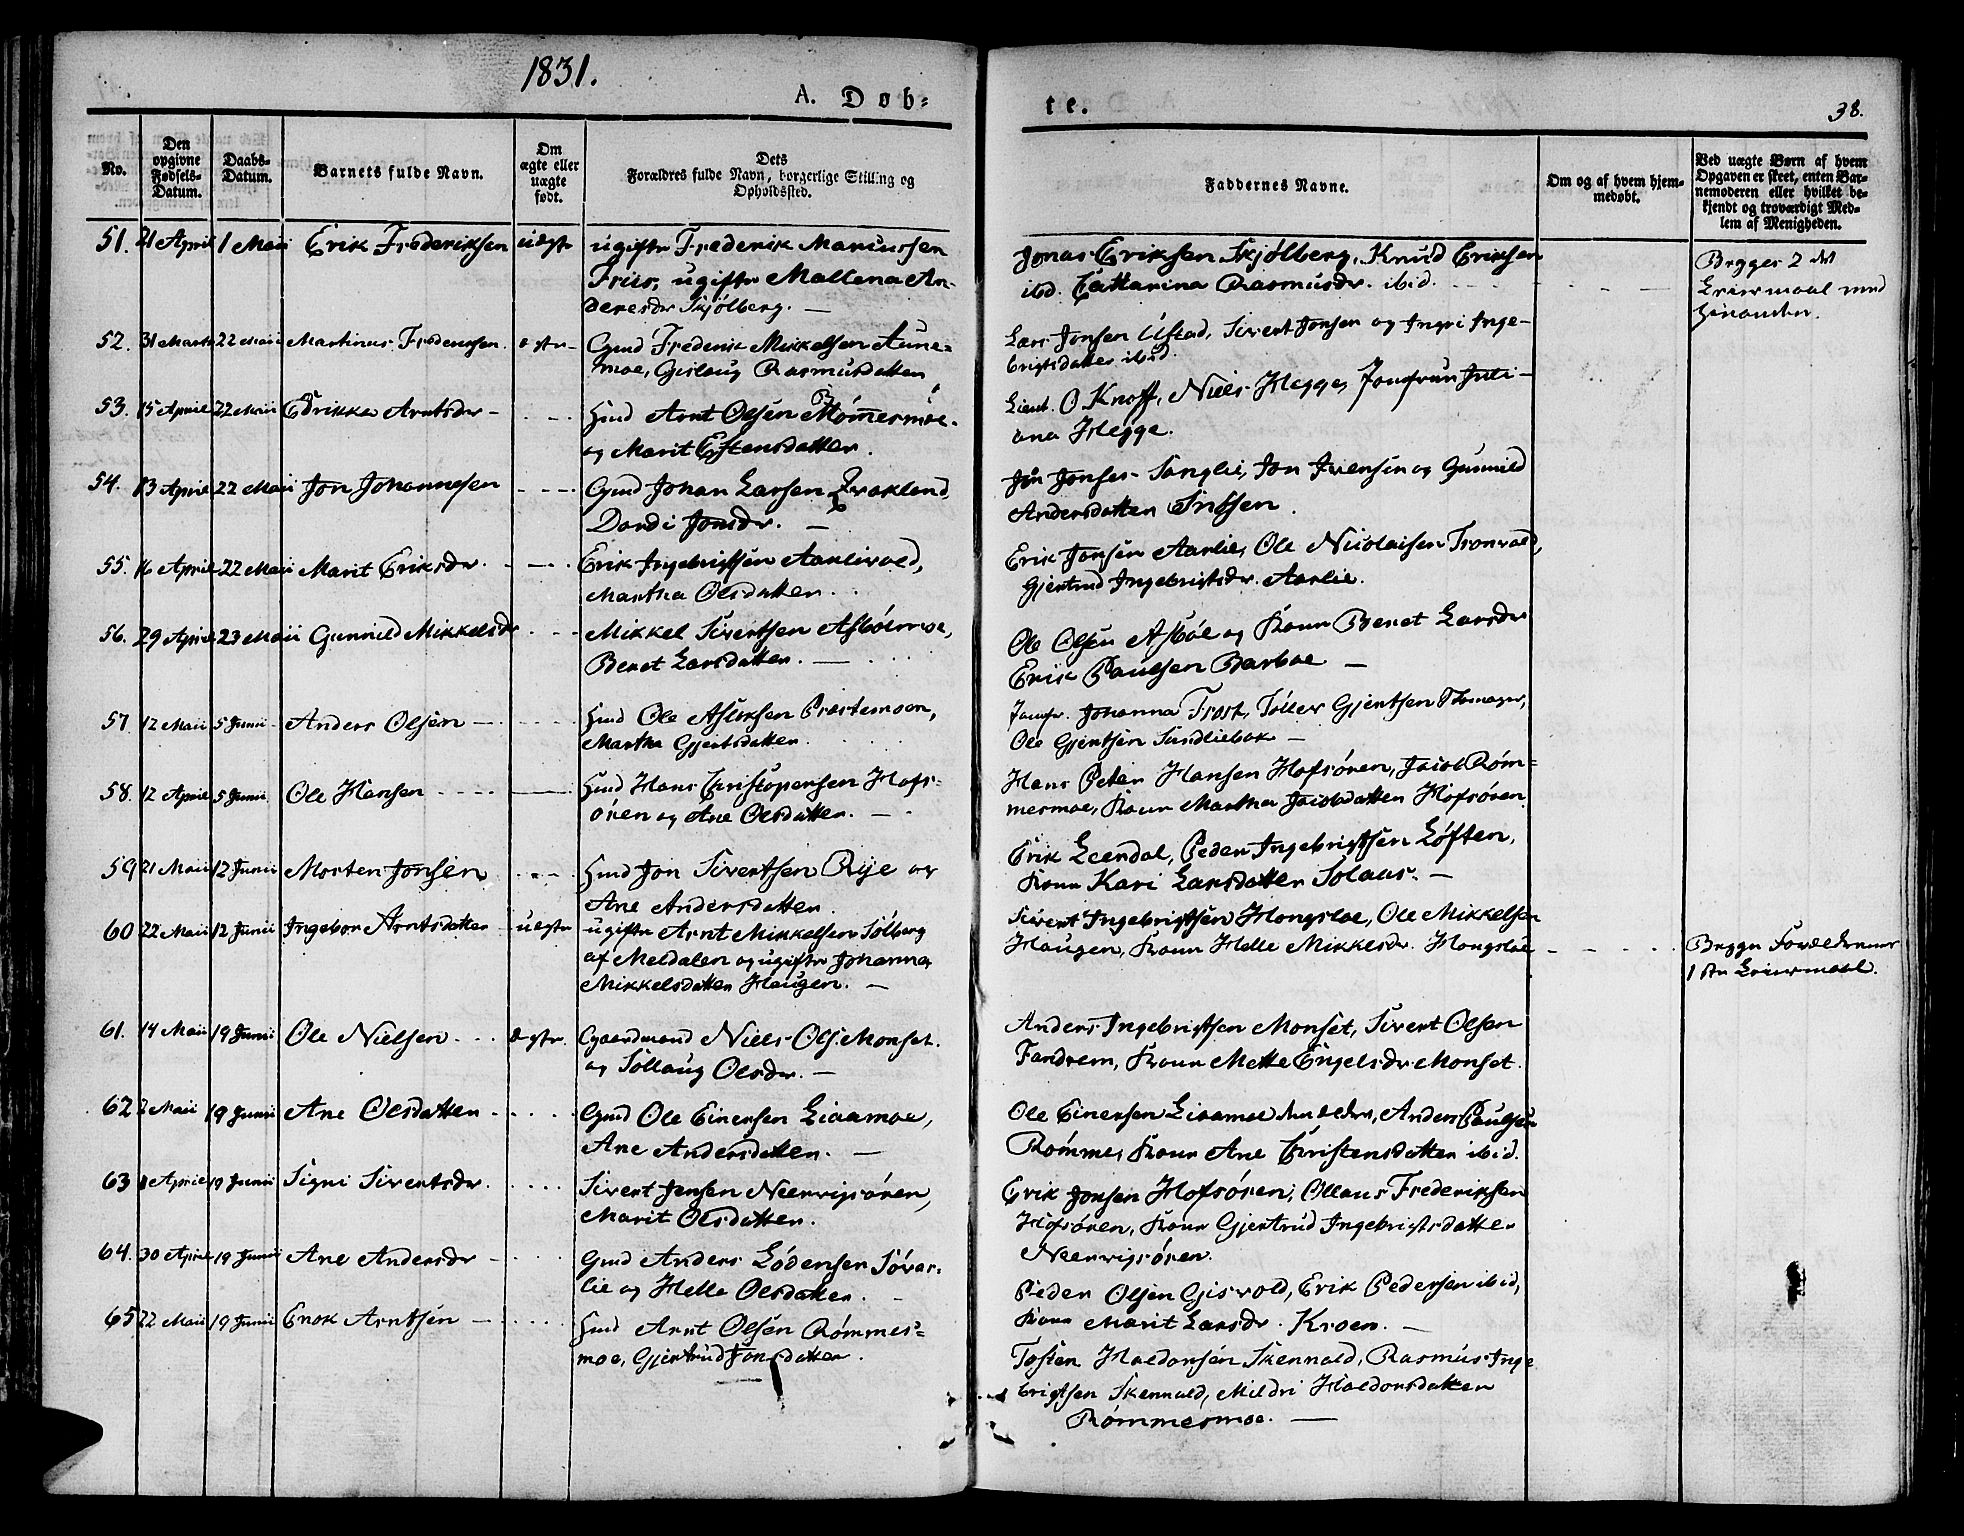 1831.
A. Døb=
te.
38.
No.
Den opgivne Fødsels-Datum.
Daabs-Datum.
Barnets fulde Navn.
Om ægte eller uægte født.
Dets Forældres fulde Navn, borgerlige Stilling og Opholdssted.
Faddernes Navne.
Om og af hvem hjemmedøbt.
Ved uægte Børn af hvem Opgaven er skeet, enten Barnemoderen eller hvilket bekjendt og troværdigt Medlem af Menigheden.
51. 21 April 1 Maii Erik Frederiksen uægte ugifte Frederik Marcussen
Friis, ugifte Mallena An-
dersdr Skjølberg. —
Jonas Eriksen Skjølberg, Knud Eriksen
ibd. Catharina Rasmusdr. ibid.
Begges 2 det
Leiermaal med
hinanden.
52. 31 Marts 22 Maii Martinus Fredericsen. ægte Gmd Frederik Mikkelsen Aune=
moe, Gislaug Rasmusdatter
Lars Jonsen Ustad, Sivert Jonsen og Ingri Inge-
brigtsdatter ibid.
53. 15 April 22 Maii Edrikka Arntsdr Hmd Arnt Olsen Rømmesmoe.
og Marit Estensdatter.
Lieut. O Knoff, Niels Hegge, Jomfrue Juli-
ana Hegge.
54. 13 April 22 Maii Jon Johannesen Gmd Johan Larsen
Dordi Jonsdr. —
Jon Ivensen og Gunnild
Andersdatter
55. 16 April 22 Maii Marit Eriksdr. Erik Ingebrigtsen Aarlivold,
Martha Olsdatter.
Erik Jonsen Aarlie, Ole Nicolaisen Tronvold,
Gjertrud Ingebrigtsdr. Aarlie.
56. 29 April 23 Maii Gunnild Mikkelsdr Mikkel Sivertsen Asbølmoe,
Beret Larsdatter. —
Ole Olsen Asbøl og Kone Beret Larsdr
Erik Paulsen Barboe —
57. 12 Maii 5 Junii Anders Olsen Hmd Ole Aslaksen Præstemoen,
Martha Gjertsdatter.
Jomfr. Johanna Frost, Toller Gjertsen
Ole Gjertsen Sundliebak —
58. 12 April 5 Junii Ole Hansen Hmd Hans Christopersen Hofs-
øren og Ane Olsdatter. —
Hans Peter Hansen Hofsøren, Jacob Røm=
mesmoe, Kone Martha Jacobsdatter Hofsøren
59 21 Maii 12 Junii Morten Jonsen Hmd Jon Sivertsen Rye og
Ane Andersdatter.
Erik Leerdal, Peder Ingebrigtsen Løften,
Kone Kari Larsdatter Solaas. —
60 22 Maii 12 Junii Ingebor Arntsdatter uægte ugifte Arnt Mikkelsen Solberg
af Meldalen og ugifte Johanna
Mikkelsdatter Haugen. —
Sivert Ingebrigtsen Hongsloe, Ole Mikkelsen
Haugen, Kone Helle Mikkelsdr. Hongsloe
Begge Forældrenes
1 ste Leiermaal.
61. 14 Maii 19 Junii Ole Nielsen ægte Gaardmand Niels Ols. Monset.
og Sollaug Olsdr. —
Anders Ingebrigtsen Monset, Sivert Olsen
Fandrem, Kone Mette Engelsdr Monset.
62 2 Maii 19 Junii Ane Olsdatter Gmd Ole Einersen Liaamoe,
Ane Andersdatter. —
Ole Einersen Liaamoe den ældre, Anders Paulsen
Rømme, Kone Ane Christensdatter ibid.
63 April 19 Junii Signi Sivertsdr. Sivert Jensen Neervigsøren,
Marit Olsdatter.
Erik Jonsen Hofsøren, Ollaus Frederiksen
Hofsøren, Kone Gjertrud Ingebrigtsdatter
Neervigsøren.
64. 30 April 19 Junii Ane Andersdr Gmd Anders Lodensen Sovas-
lie og Helle Olsdatter.
Peder Olsen Gisvold, Erik Pedersen ibid,
Kone Marit Larsdr. Kroen. —
65 22 Maii 19 Junii Enok Arntsen Hmd Arnt Olsen Rømmes=
moe, Gjertrud Jonsdatter.
Tosten Haldorsen Skenнald, Rasmus Inge
brigtsen Skennald, Mildri Haldorsdatter
Rømmesmoe. —